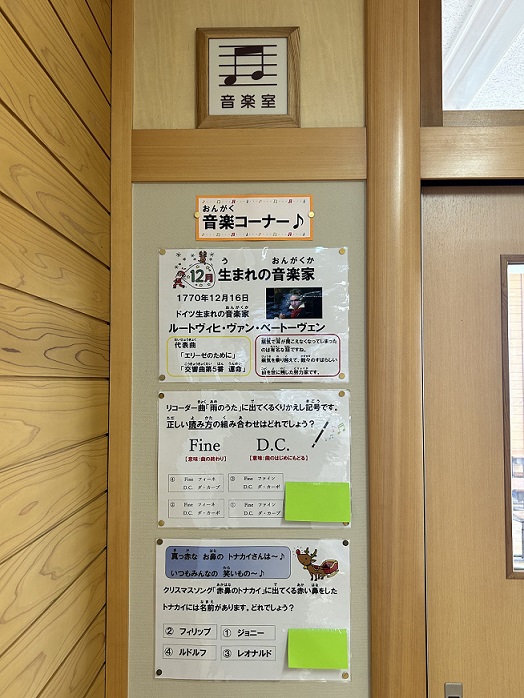 音楽室
おんがく
音楽コーナー♪
12月 生まれの音楽家
う おんがくか
1770年12月16日
おんがくか
ドイツ生まれの音楽家
ルートヴィヒ・ヴァン・ベートーヴェン
代表曲
「エリーゼのために」
「交響曲第5番 運命」
病気で耳が聞こえなくなってしまった
のは有名な話ですね。
病気を乗り越えて、数々のすばらしい
曲を世に残した努力家です。
リコーダー曲「雨のうた」に出てくるくりかえし記号です。
正しい読み方の組み合わせはどれでしょう?
Fine D.C.
【意味:曲の終わり】 【意味:曲のはじめにもどる】
④ Fine フィーネ
D.C. ダ・カープ
③ Fine ファイン
D.C. ダ・カーポ
② Fine フィーネ
D.C. ダ・カーポ
① Fine ファイン
D.C. ダ・カープ
真っ赤な お鼻の トナカイさんは~♪
いつもみんなの 笑いもの~♪
クリスマスソング「赤鼻のトナカイ」に出てくる赤い鼻をした
トナカイには名前があります。どれでしょう?
② フィリップ ① ジョニー
④ ルドルフ ③ レオナルド